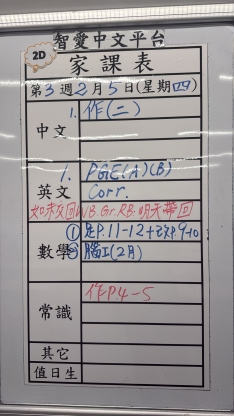 智愛中文平台
2D
家課表
第3週2月5日(星期四)
中文
1. 作(二)
英文
1. PGE(A)(B)
Corr.
如未交回WB.Gr.RB.明天帶回
數學
① P.11-12+ P.9-10
② 腦工(2月)
常識
作P4-5
其它
值日生